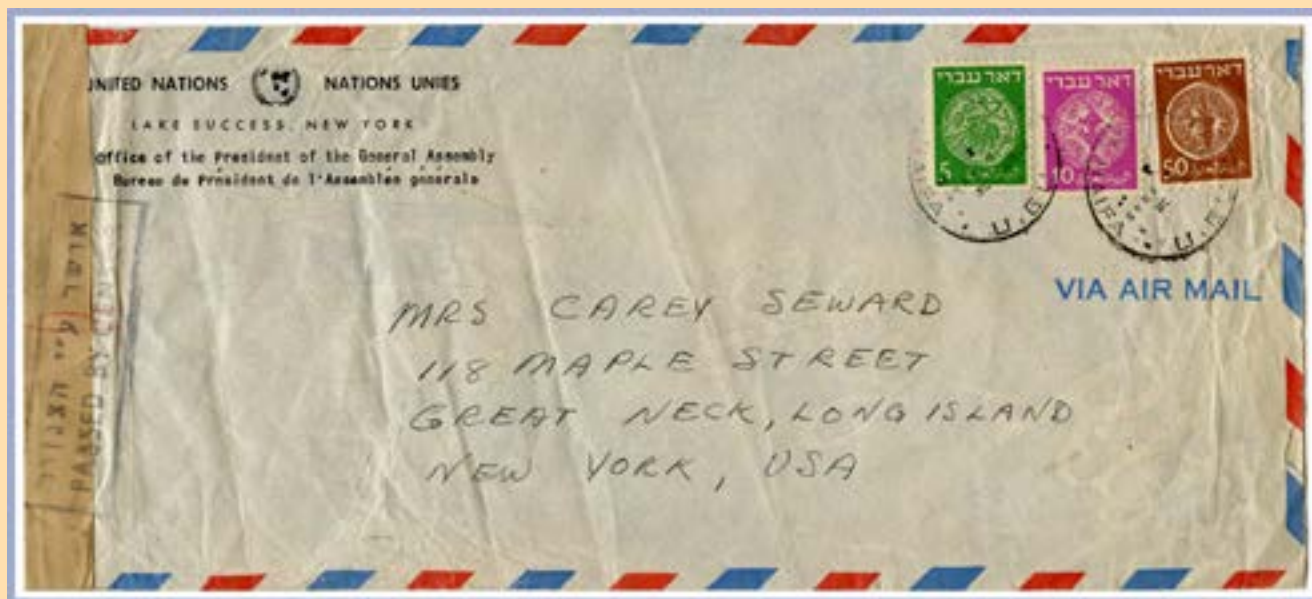 UNITED NATIONS NATIONS UNIES
LAKE SUCCESS, NEW YORK
Office of the President of the General Assembly
Bureau de Président de l'Assemblée générale
דאר עברי
5
דאר עברי
10
דאר עברי
50
HAIFA
HAIFA
VIA AIR MAIL
MRS CAREY SEWARD
118 MAPLE STREET
GREAT NECK, LONG ISLAND
NEW YORK, USA
PASSED BY CEN